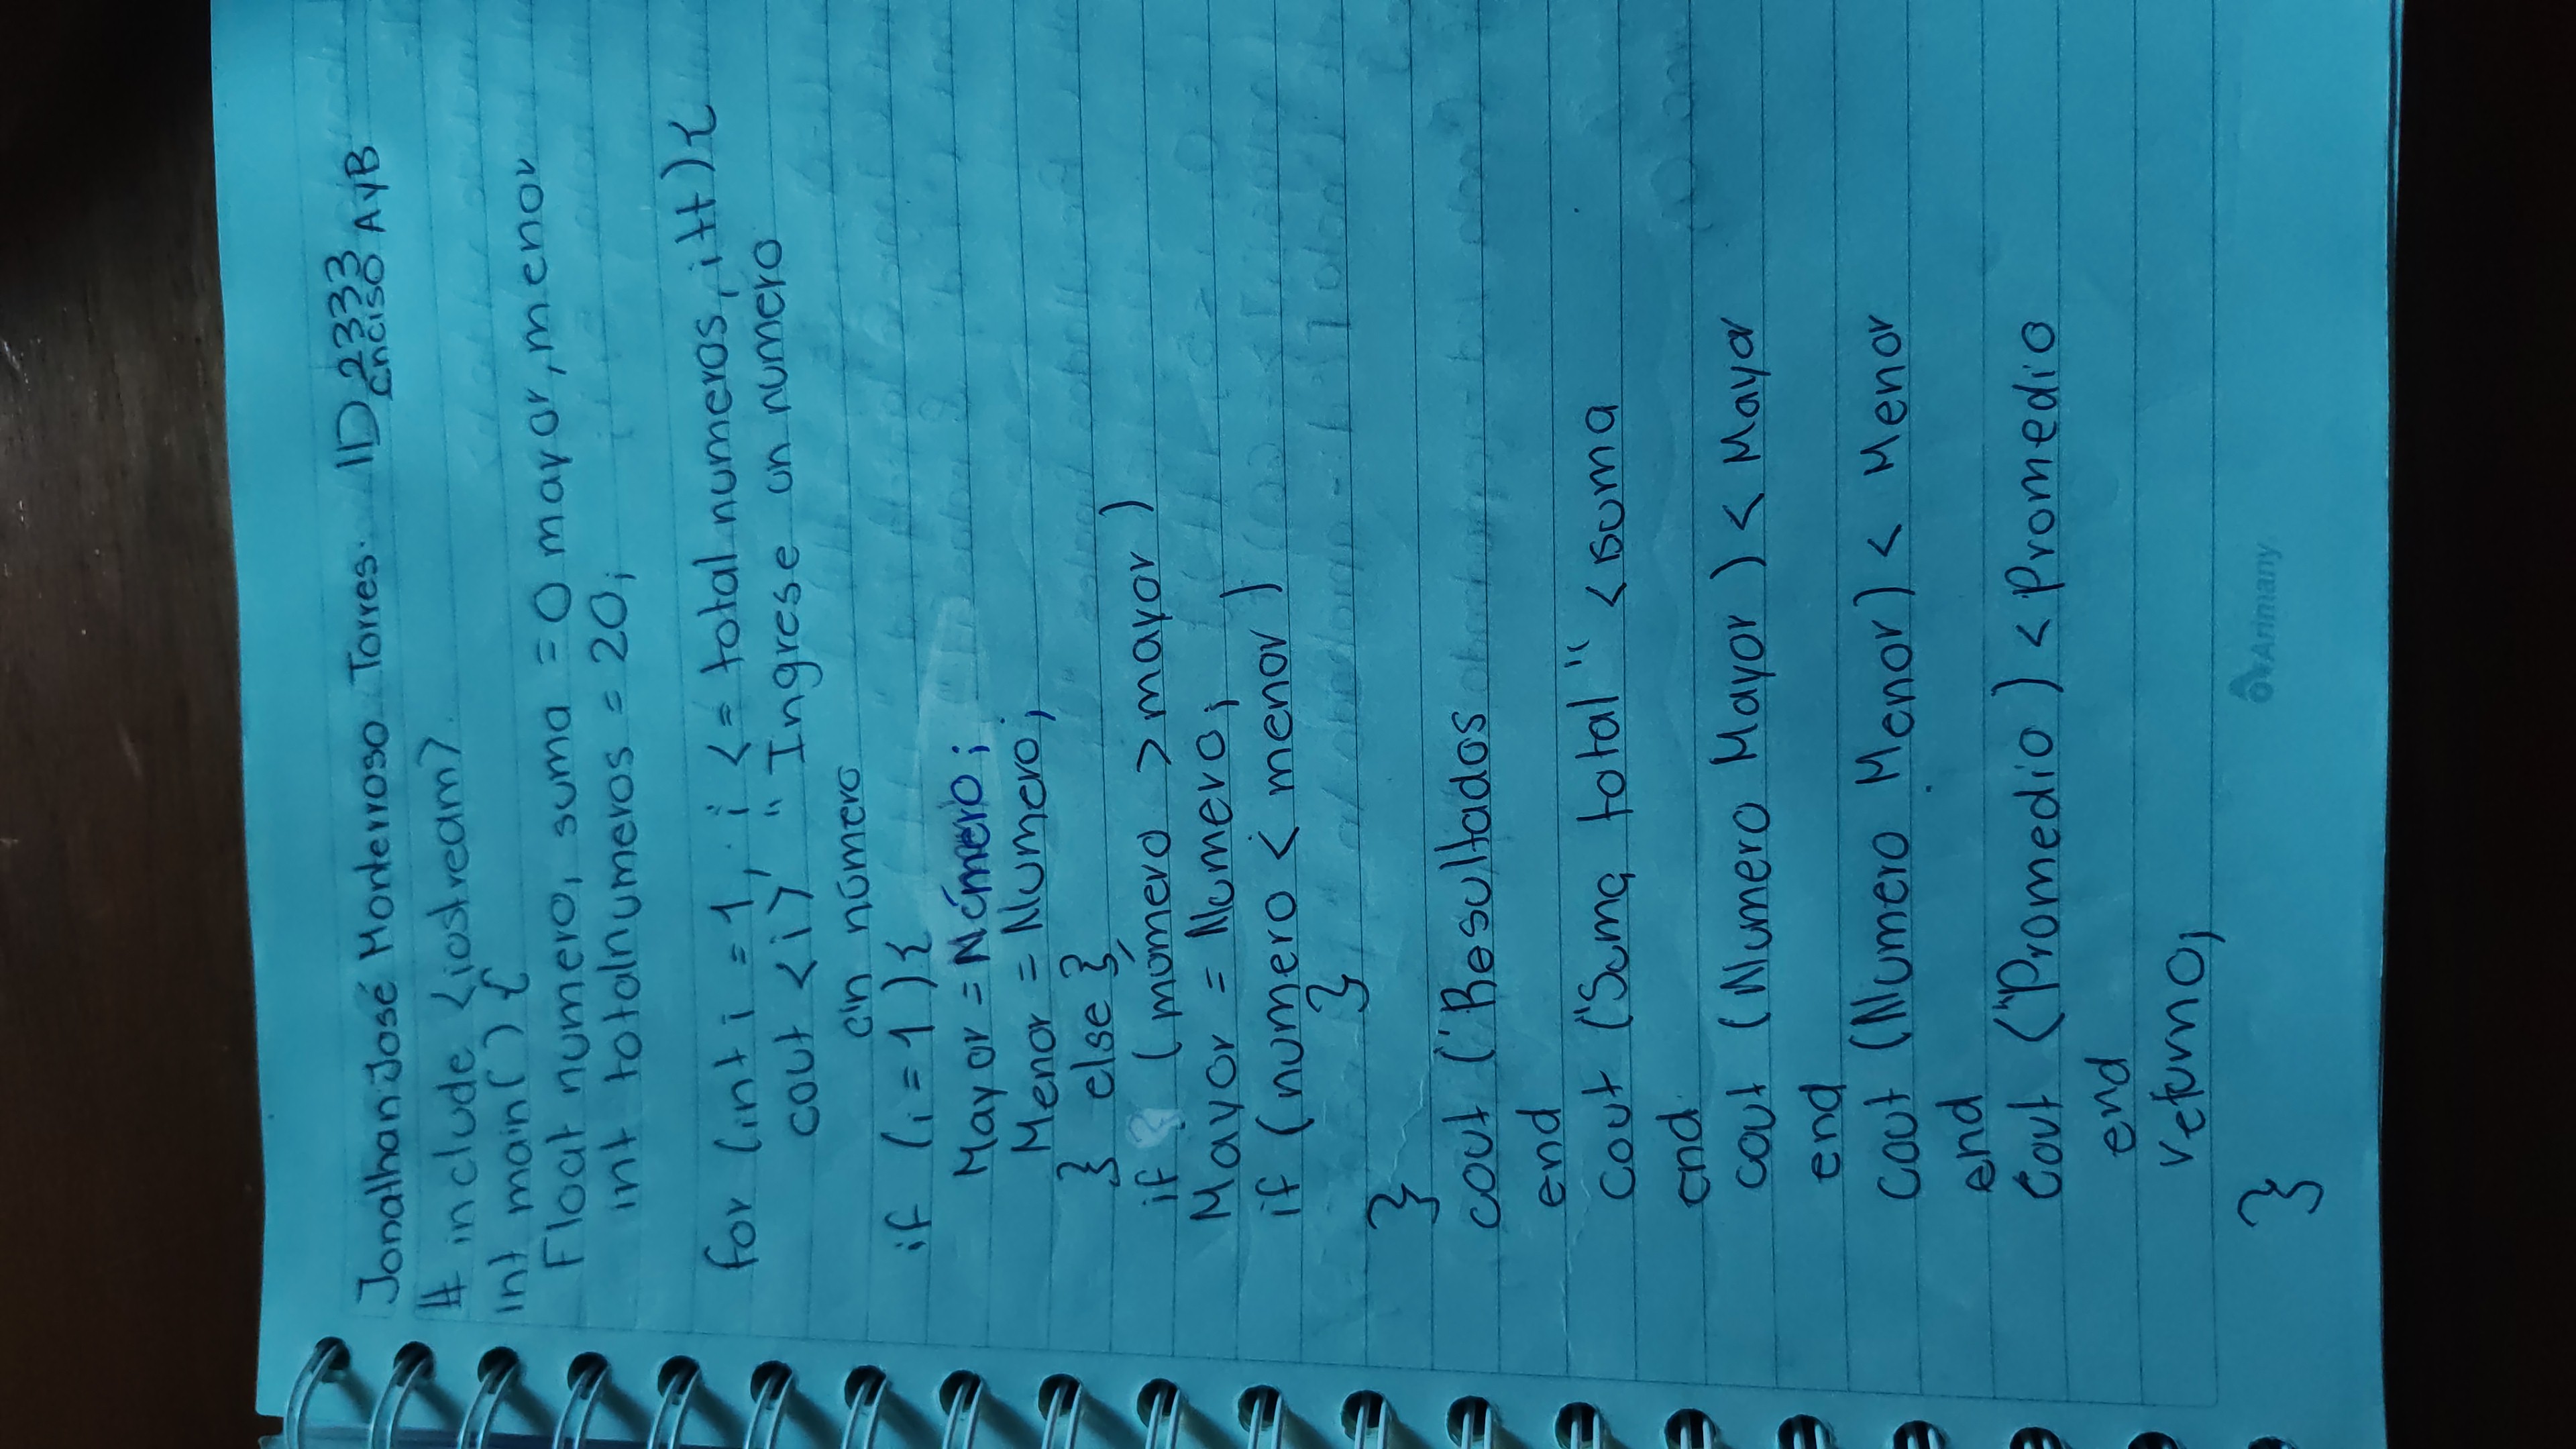 Jonathan José Monterroso Torres. ID 2333
enciso AyB
# include <iostream>
int main() {
Float numero, suma = 0 mayor, menor
int totalnumeros = 20;
for (int i = 1, i <= total numeros, i++) {
cout < i > " Ingrese un numero
cin número
if (i = 1) {
Mayor = Número;
Menor = Numero;
} else }
if (numero > mayor )
Mayor = Numero;
if (numero < menor )
}
}
cout ("Resultados
end
cout ("Suma total" < suma
end
cout (Numero Mayor ) < Mayor
end
cout (Numero Menor) < Menor
end
cout ("Promedio ) < Promedio
end
return 0;
}
Arimany